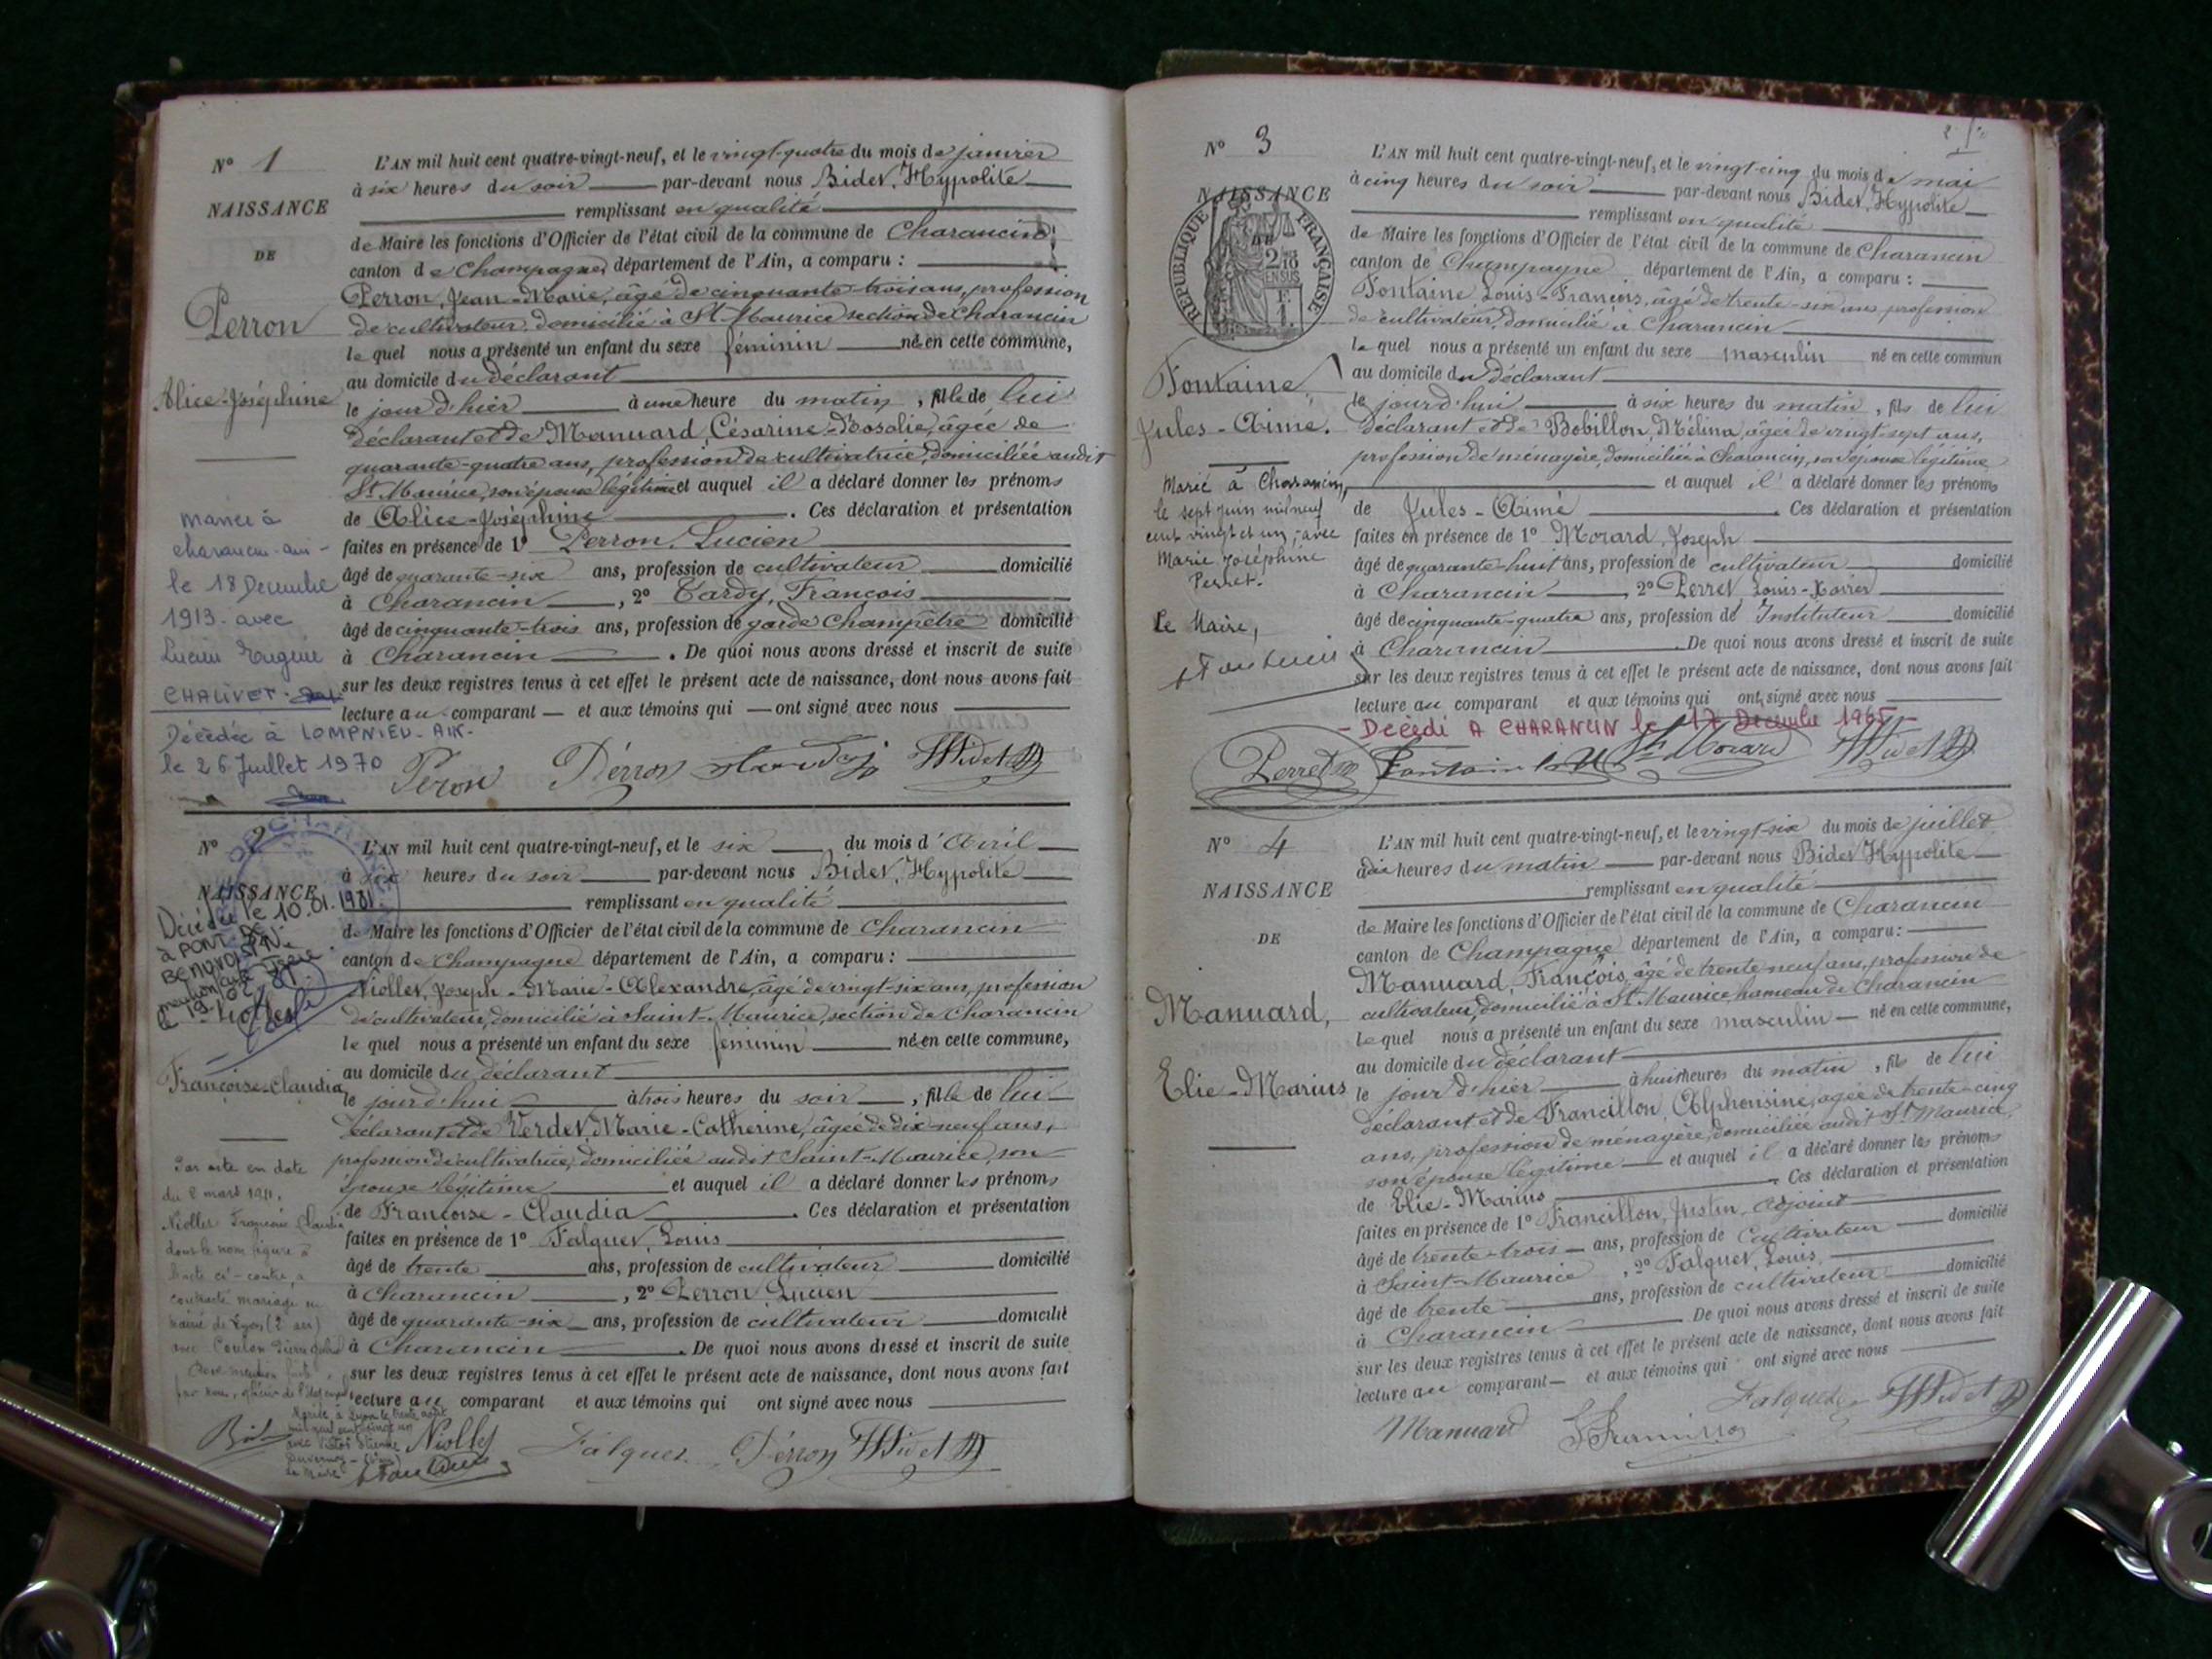 N° 1
NAISSANCE
DE
Perron
Alice-Joséphine
Mariée à
charancin-ain-
le 18 Décembre
1913 - avec
Lucien Eugène
CHALIVET
Décédée à LOMPNIEU-AIN-
le 26 Juillet 1970
L'AN mil huit cent quatre-vingt-neuf, et le vingt-quatre du mois de janvier
à six heures du soir par-devant nous Bidet, Hypolite
remplissant en qualité
de Maire les fonctions d'Officier de l'état civil de la commune de Charancin
canton de Champagne, département de l'Ain, a comparu :
Perron, Jean-Marie, âgé de cinquante-trois ans, profession
de cultivateur, domicilié à St Maurice section de Charancin
lequel nous a présenté un enfant du sexe féminin née en cette commune,
au domicile du déclarant
le jour d'hier à une heure du matin, fille de lui
déclarant et de Manuard, Césarine-Rosalie, âgée de
quarante-quatre ans, profession de cultivatrice, domiciliée audit
St Maurice, son épouse légitime et auquel il a déclaré donner les prénoms
de Alice-Joséphine. Ces déclaration et présentation
faites en présence de 1° Perron, Lucien
âgé de quarante-six ans, profession de cultivateur domicilié
à Charancin, 2° Tardy, François
âgé de cinquante-trois ans, profession de garde champêtre domicilié
à Charancin. De quoi nous avons dressé et inscrit de suite
sur les deux registres tenus à cet effet le présent acte de naissance, dont nous avons fait
lecture au comparant — et aux témoins qui — ont signé avec nous
Peron Perron Tardy HBidet
N° 2
NAISSANCE
Décédée le 10.01.1981
à PONT-DE
BEAUVOISIN
Françoise-Claudia
Par acte en date
du 2 mars 1911,
Niollet Françoise Claudia
dont le nom figure à
l'acte ci-contre, a
contracté mariage en
mairie de Lyon (2e arr)
avec Coulon
L'AN mil huit cent quatre-vingt-neuf, et le six du mois d'Avril
à six heures du soir par-devant nous Bidet, Hypolite
remplissant en qualité
de Maire les fonctions d'Officier de l'état civil de la commune de Charancin
canton de Champagne département de l'Ain, a comparu :
Niollet, Joseph-Marie-Alexandre, âgé de vingt-six ans, profession
de cultivateur, domicilié à Saint-Maurice, section de Charancin
lequel nous a présenté un enfant du sexe féminin née en cette commune,
au domicile du déclarant
le jour d'hui à trois heures du soir, fille de lui
déclarant et de Verdet, Marie-Catherine, âgée de dix-neuf ans,
profession de cultivatrice, domiciliée audit Saint-Maurice, son
épouse légitime et auquel il a déclaré donner les prénoms
de Françoise-Claudia. Ces déclaration et présentation
faites en présence de 1° Falquet, Louis
âgé de trente ans, profession de cultivateur domicilié
à Charancin, 2° Perron Lucien
âgé de quarante-six ans, profession de cultivateur domicilié
à Charancin. De quoi nous avons dressé et inscrit de suite
sur les deux registres tenus à cet effet le présent acte de naissance, dont nous avons fait
lecture au comparant et aux témoins qui ont signé avec nous
Niollet Falquet Perron HBidet
N° 3
NAISSANCE
RÉPUBLIQUE FRANÇAISE
2/10
EN SUS
Fontaine,
Jules-Aimé.
Marié à Charancin,
le sept juin mil neuf
cent vingt et un, avec
Marie Joséphine
Perret.
Le Maire,
L'AN mil huit cent quatre-vingt-neuf, et le vingt-cinq du mois de mai
à cinq heures du soir par-devant nous Bidet, Hypolite
remplissant en qualité
de Maire les fonctions d'Officier de l'état civil de la commune de Charancin
canton de Champagne département de l'Ain, a comparu :
Fontaine Louis-François, âgé de trente-six ans profession
de cultivateur, domicilié à Charancin
lequel nous a présenté un enfant du sexe masculin né en cette commun
au domicile du déclarant
le jourd'hui à six heures du matin, fils de lui
déclarant et de Bobillon, Mélina, âgée de vingt-sept ans,
profession de ménagère, domiciliée à Charancin, son épouse légitime
et auquel il a déclaré donner les prénoms
de Jules-Aimé. Ces déclaration et présentation
faites en présence de 1° Morard, Joseph
âgé de quarante-huit ans, profession de cultivateur domicilié
à Charancin, 2° Perret, Louis-Xavier
âgé de cinquante-quatre ans, profession de Instituteur domicilié
à Charancin. De quoi nous avons dressé et inscrit de suite
sur les deux registres tenus à cet effet le présent acte de naissance, dont nous avons fait
lecture au comparant et aux témoins qui ont signé avec nous
- Décédé A CHARANCIN le 17 Décembre 1965 -
Perret Fontaine Morard HBidet
N° 4
NAISSANCE
DE
Manuard,
Elie-Marius
L'AN mil huit cent quatre-vingt-neuf, et le vingt-six du mois de juillet
à dix heures du matin par-devant nous Bidet Hypolite
remplissant en qualité
de Maire les fonctions d'Officier de l'état civil de la commune de Charancin
canton de Champagne département de l'Ain, a comparu :
Manuard, François, âgé de trente-neuf ans, profession de
cultivateur, domicilié à St Maurice, hameau de Charancin
lequel nous a présenté un enfant du sexe masculin — né en cette commune,
au domicile du déclarant
le jour d'hier à huit heures du matin, fils de lui
déclarant et de Francillon, Alphonsine, âgée de trente-cinq
ans, profession de ménagère, domiciliée audit St Maurice,
son épouse légitime — et auquel il a déclaré donner les prénoms
de Elie-Marius. Ces déclaration et présentation
faites en présence de 1° Francillon, Justin, adjoint
âgé de trente-trois ans, profession de Cultivateur domicilié
à Saint-Maurice, 2° Falquet, Louis,
âgé de trente ans, profession de cultivateur domicilié
à Charancin. De quoi nous avons dressé et inscrit de suite
sur les deux registres tenus à cet effet le présent acte de naissance, dont nous avons fait
lecture au comparant — et aux témoins qui ont signé avec nous
Manuard Falquet HBidet